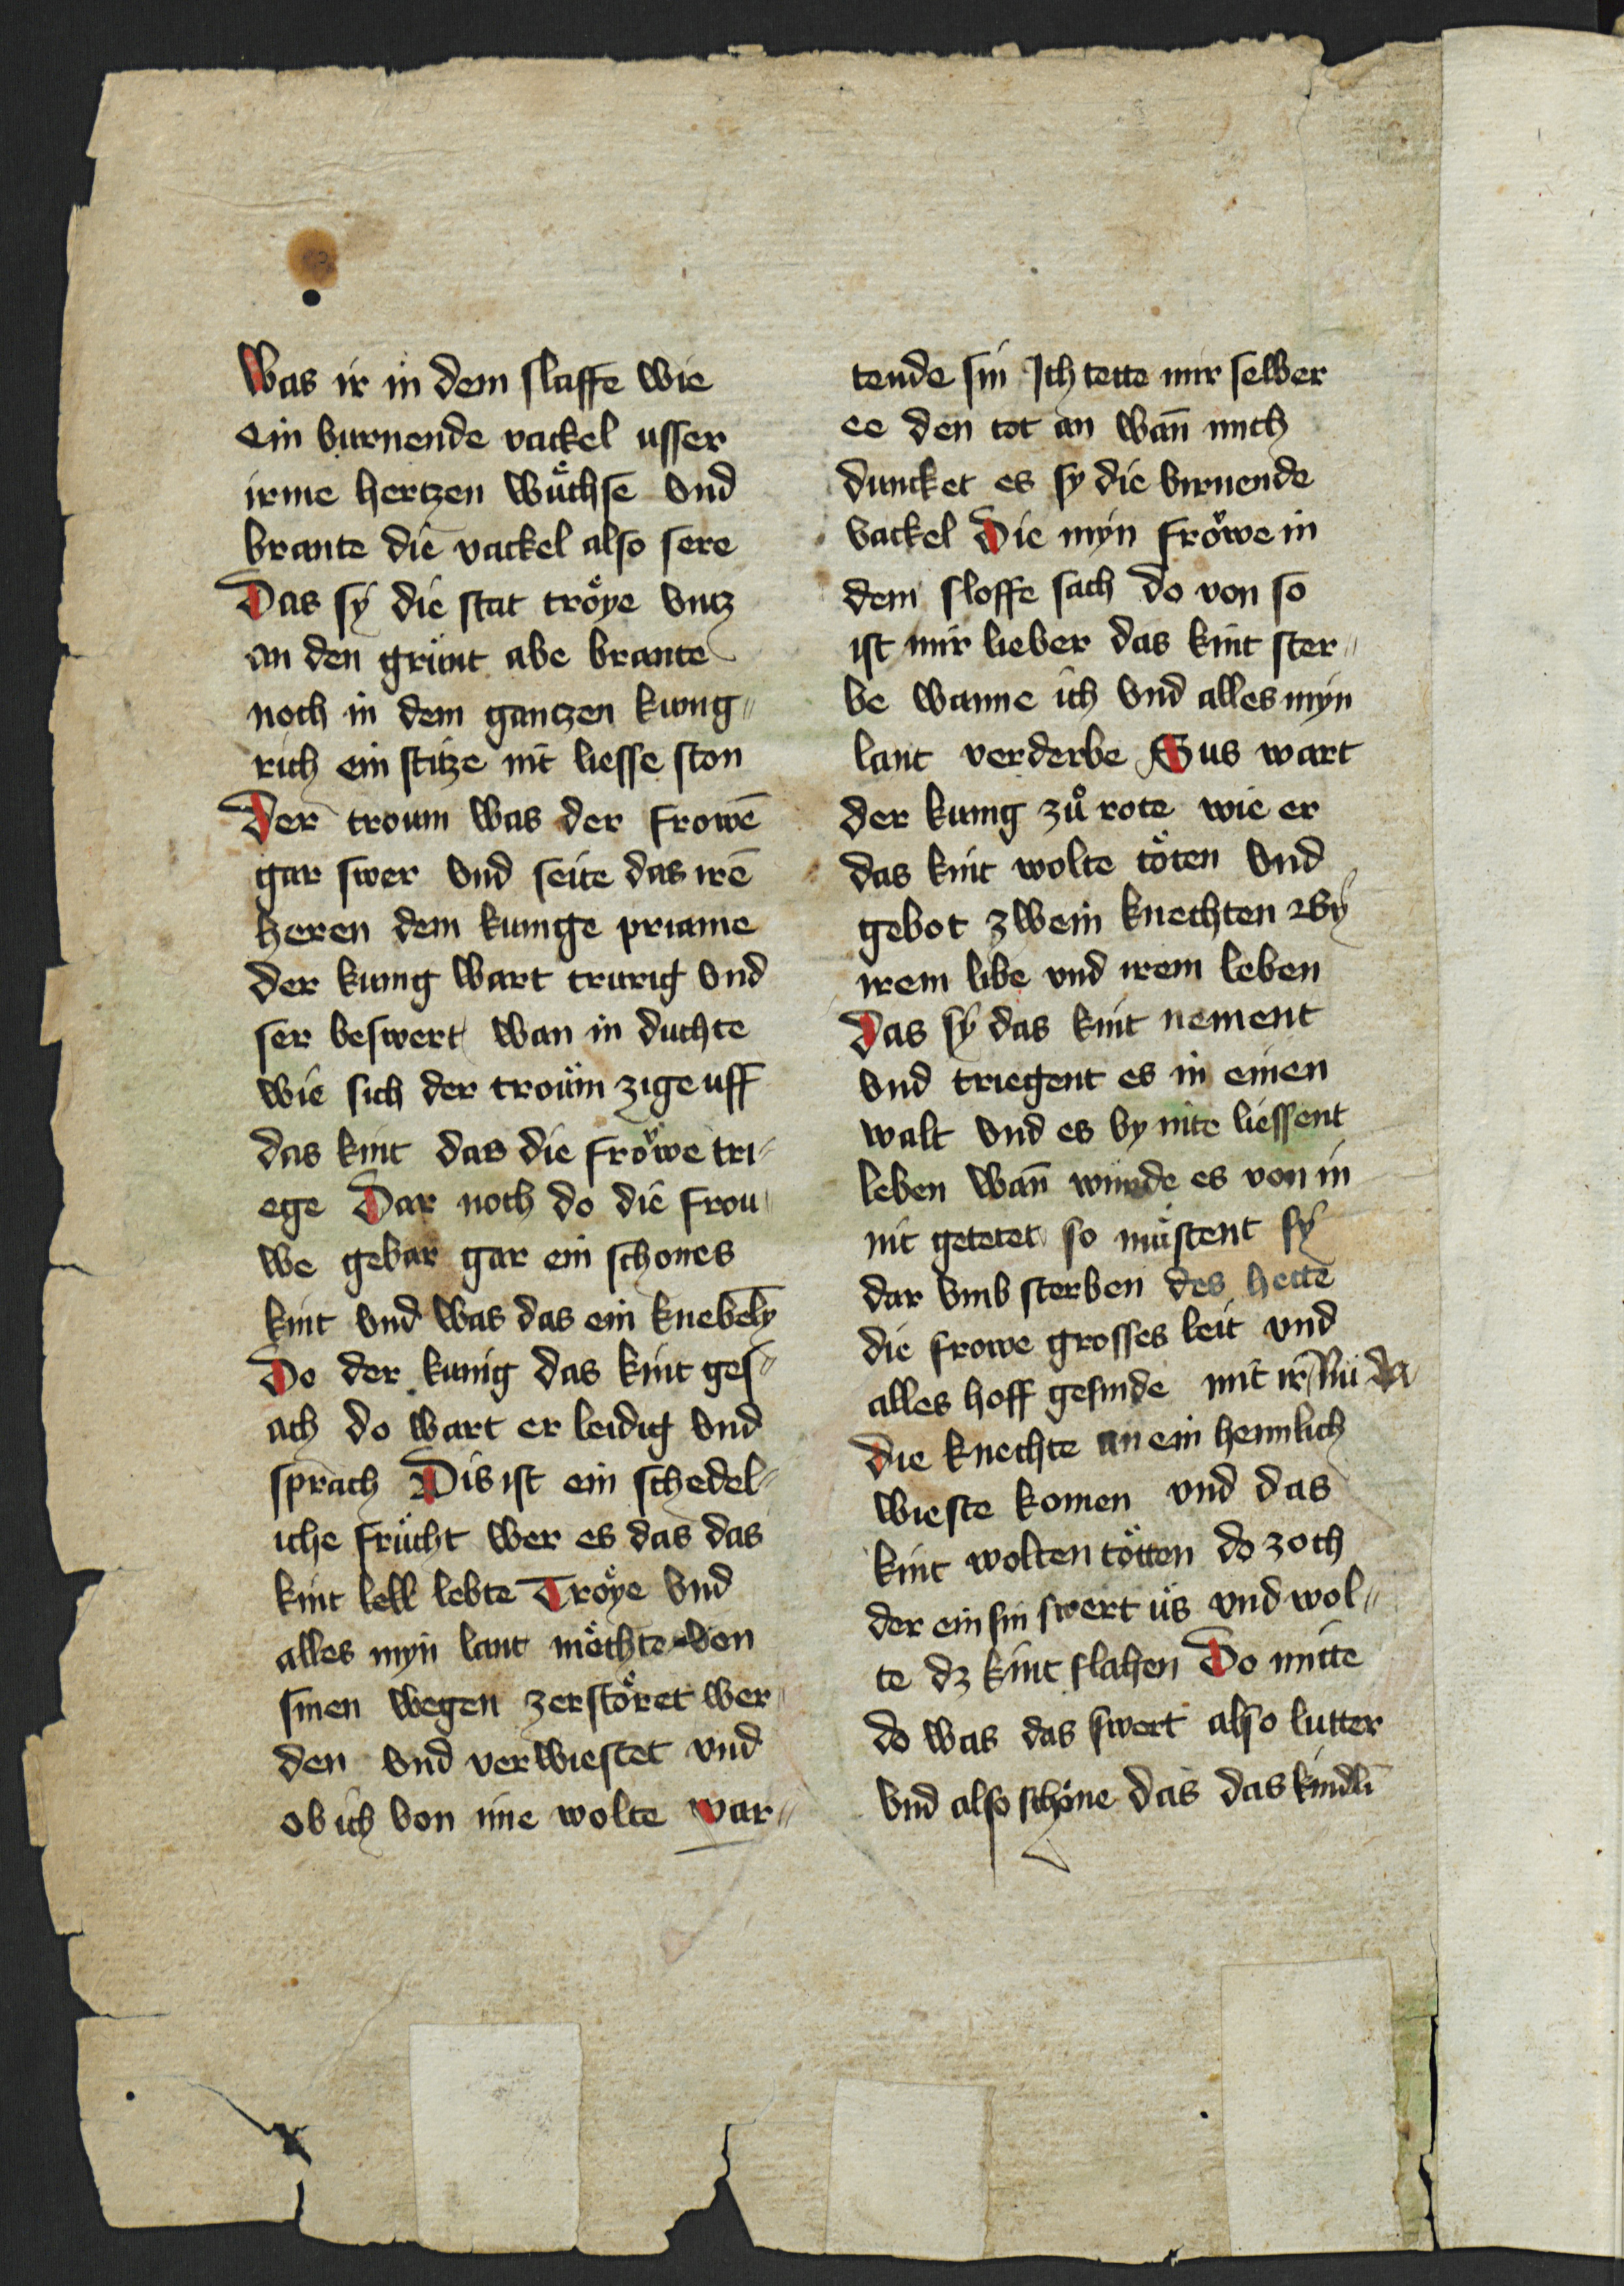 Was ir in dem slaffe wie
ein burnende vackel usser
irme hertzen wuͤchse vnd
brante die vackel also sere
Das sy die stat troͤye vntz
an den grunt abe brante
noch in dem gantzen kung„
rich ein stitze nit liesse ston
Der troum was der frowē
gar swer vnd seite das irē
heren dem kunige priame
der kunig wart trurig vnd
ser beswert wan in duchte
wie sich der troum zige uff
das kint das die froͤwe tri„
ege Dar noch do die frou„
we gebar gar ein schones
kint vnd was das ein knebely
Do der kunig das kint ges„
ach do wart er leidig vnd
sprach Dis ist ein schedel„
iche frucht wer es das das
kint lell lebte Troͤye vnd
alles myn lant moͤchte von
sinen wegen zerstoͤret wer„
den vnd verwiestet vnd
ob ich von ime wolte war„
tende sin Ich tette mir selber
ee den tot an wan̄ mich
duncket es sy die burnende
vackel Die myn froͤwe in
dem sloffe sach do von so
ist mir lieber das kint ster„
be wanne ich vnd alles myn
lant verderbe Sus wart
der kunig zuͦ rote wie er
das kint wolte toͤten vnd
gebot zwein knechten By
irem libe vnd irem leben
Das sy das kint nement
vnd triegent es in einen
walt vnd es by nite liessent
leben wan̄ wurde es von in
nit getetet so muͤstent sy
dar vmb sterben des hette
die frowe grosses leit vnd
alles hoff gesinde mit ir Nu da
die knechte an ein heimlich
wieste komen vnd das
kint wolten toͤtten do zoch
der ein sin swert us vnd wol„
te dz kint slahen Do mitte
do was das swert also lutter
vnd also schoͤne das das kindli